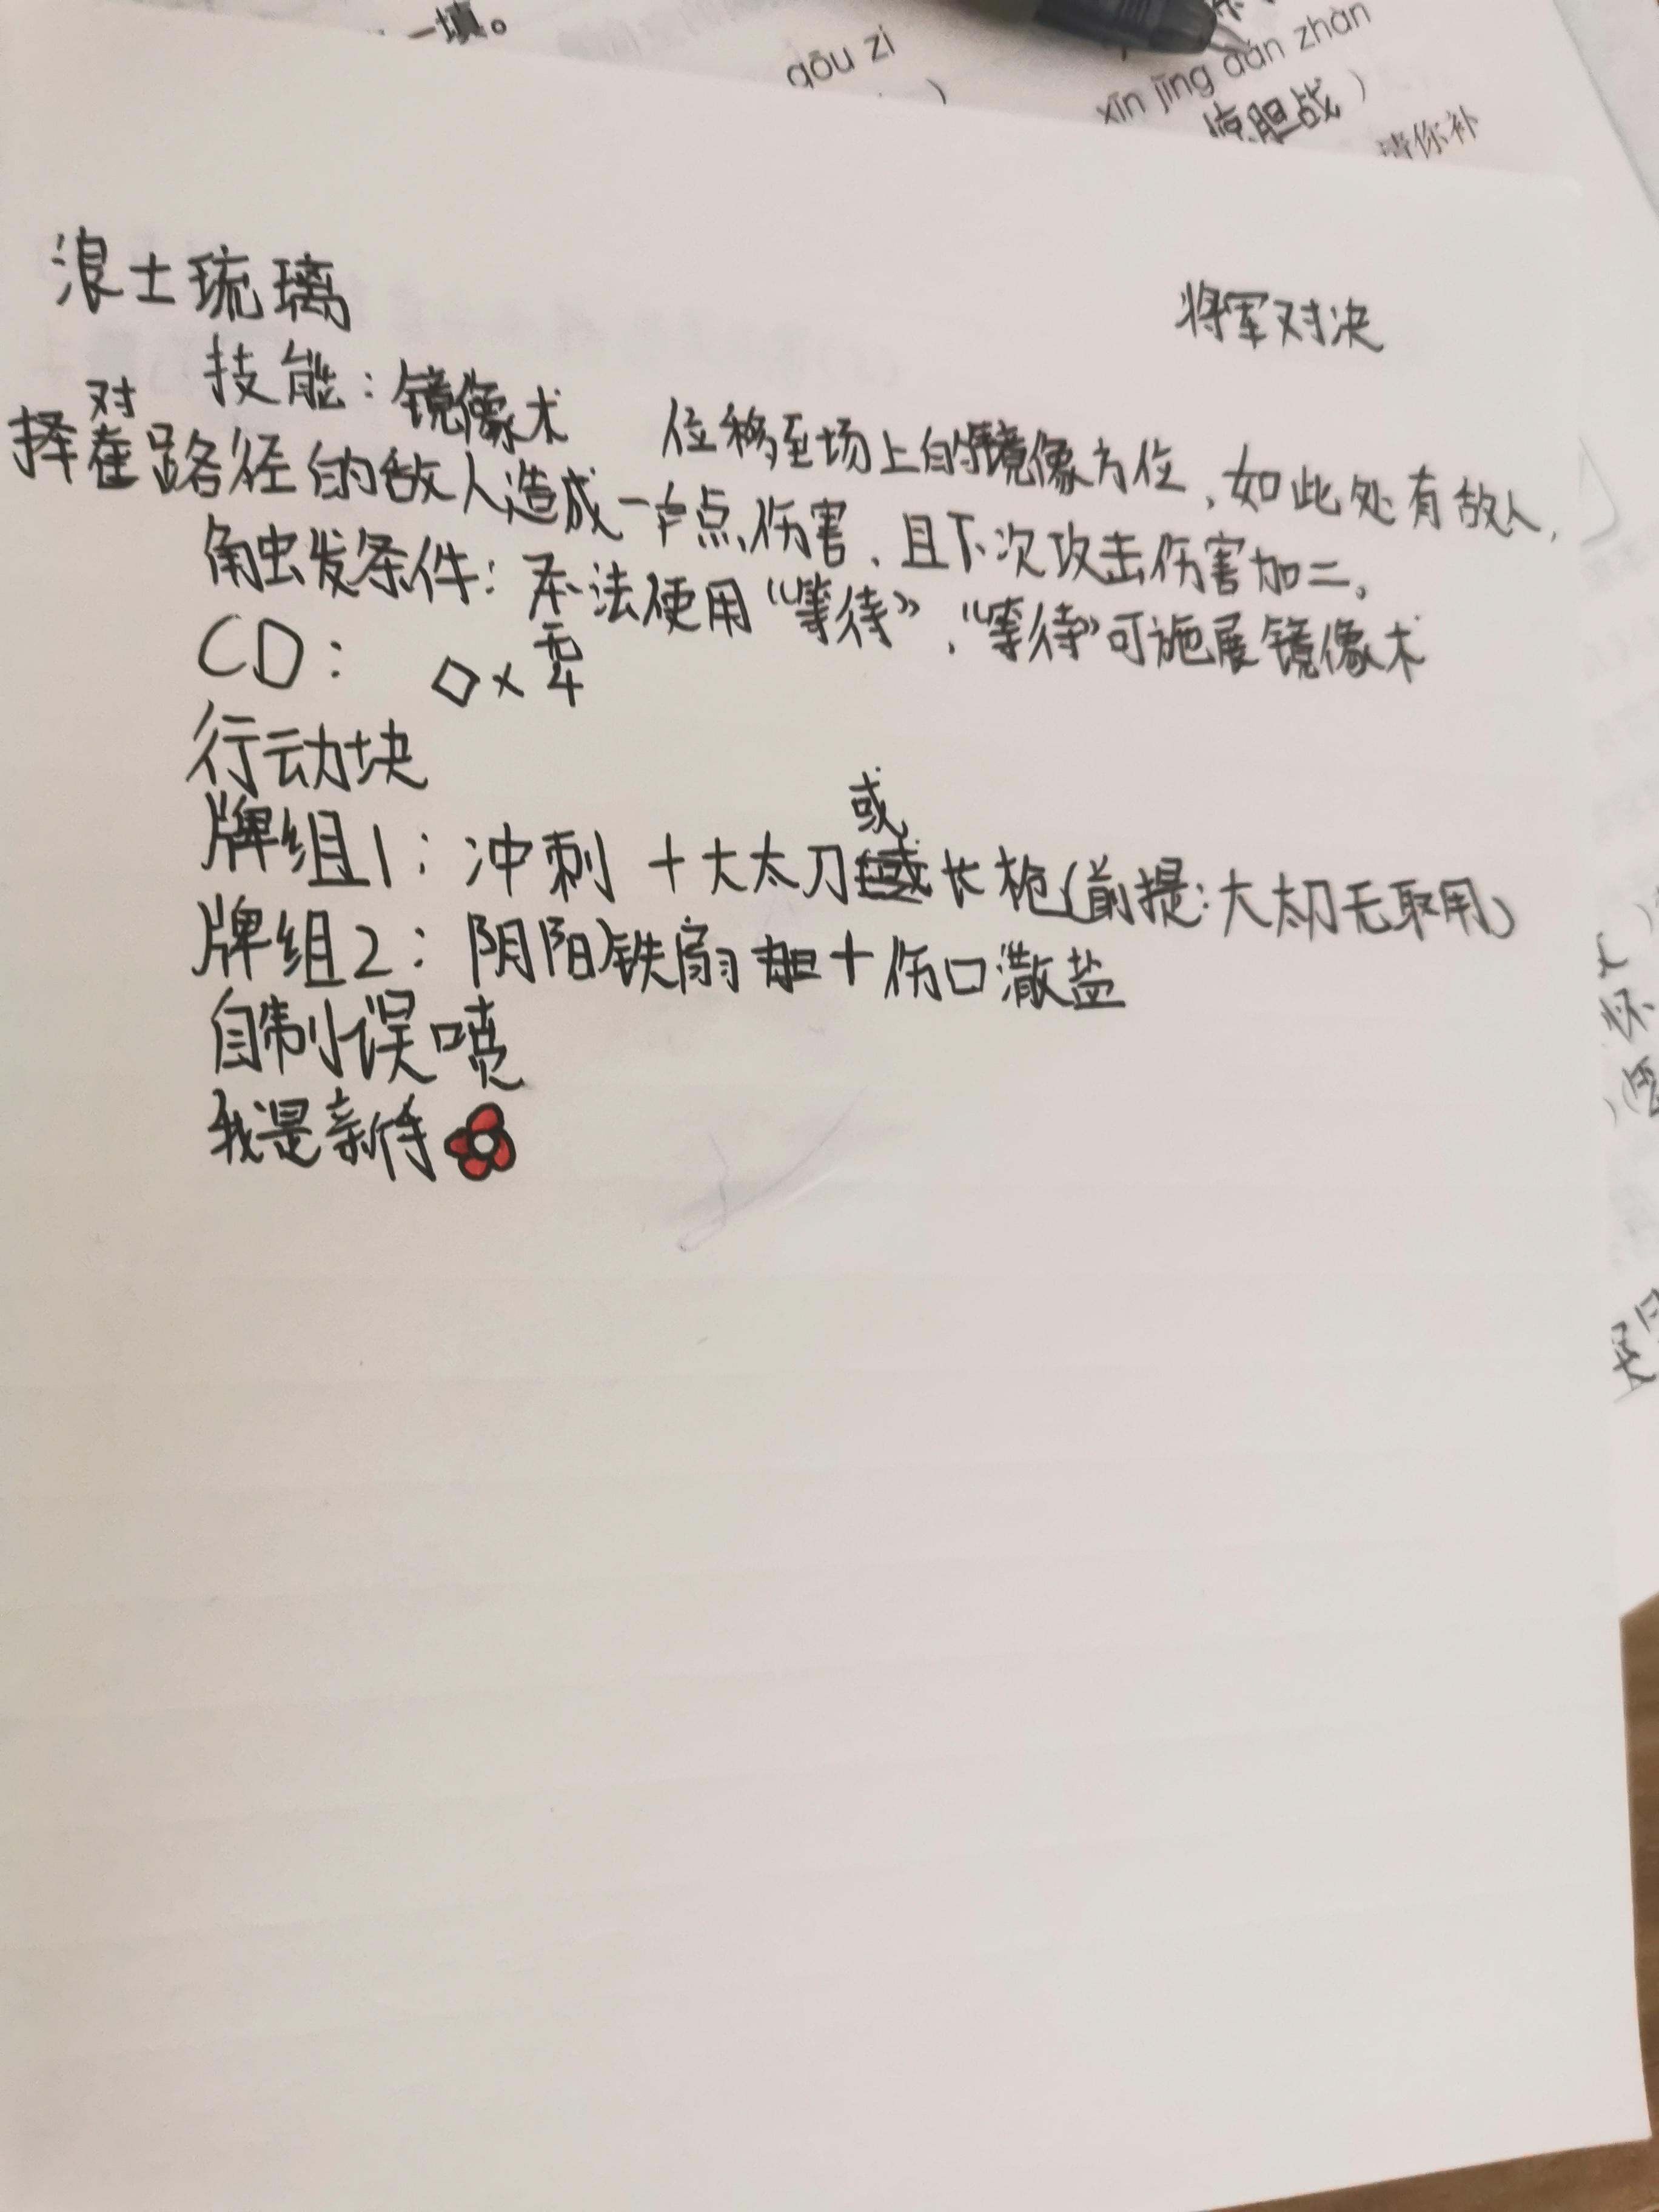 一填。
gōu zi
)
xīn jīng dǎn zhàn
惊胆战)
请你补
浪士琉璃
将军对决
技能：镜像术 位移至场上的镜像方位，如此处有敌人，
择对路径的敌人造成一点伤害，且下次攻击伤害加二。
触发条件：无法使用“等待”，“等待”可施展镜像术
CD： ◇×4
行动块
牌组1：冲刺＋大太刀或长枪(前提：大太刀无取用)
牌组2：阴阳铁扇＋伤口潵盐
自制误喷
我是新手